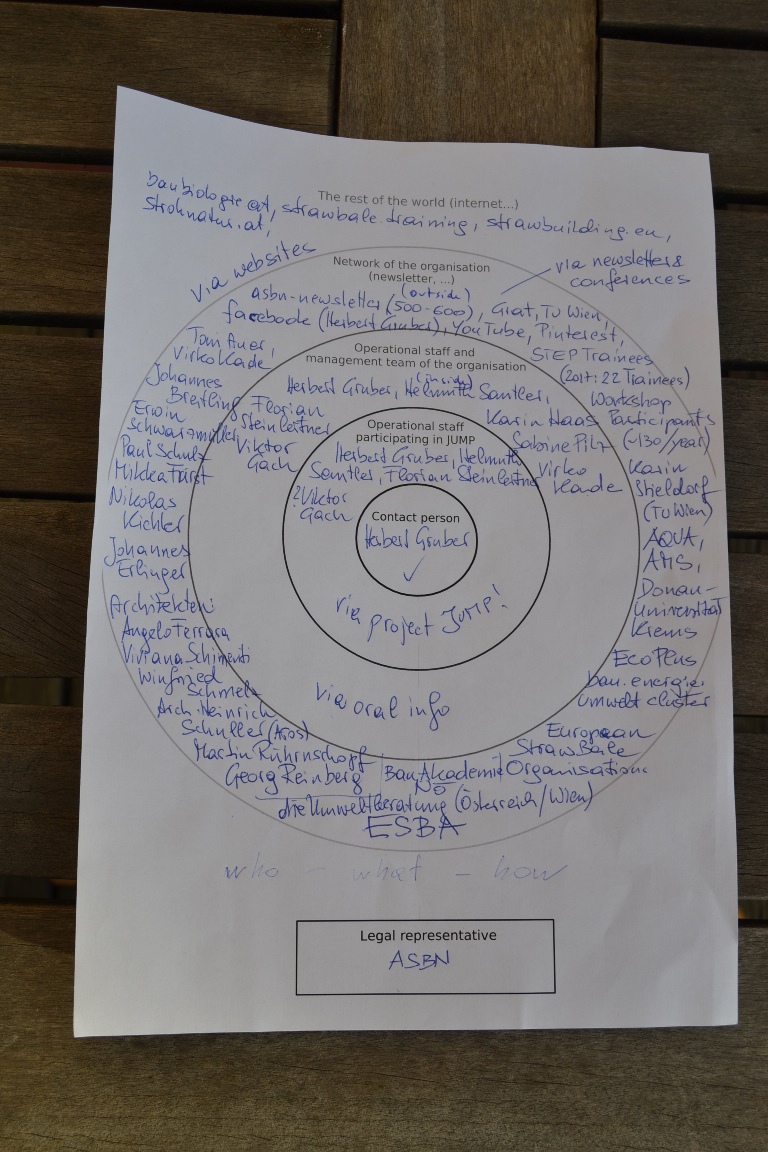 The rest of the world (internet...)
baubiologie.at, strawbale.training, strawbuilding.eu,
strohnatur.at,
via websites
Network of the organisation
(newsletter, ...)
via newsletter &
conferences
(outside)
asbn-newsletter (500-600), Grat, TU Wien,
facebook (Herbert Gruber), YouTube, Pinterest,
STEP Trainees
(2017: 22 Trainees)
Workshop
Participants
(~130/year)
Karin
Stieldorf
(TU Wien)
AQUA,
AMS,
Donau-
Universität
Krems
EcoPlus
bau.energie.
umwelt cluster
European
Straw Bale
Organisations
Tom Auer,
Virko Kade
Johannes
Breitling
Erwin
Schwarzmüller
Paul Schulz
Nikolas
Kichler
Johannes
Erlinger
Architekten
Angelo Ferrara
Viviana Schimenti
Winfried
Schmelz
Arch. Heinrich
Schuller (Atos)
Martin Rührnschopf
Georg Reinberg
BauAkademie
NÖ
die Umweltberatung (Österreich/Wien)
ESBA
Operational staff and
management team of the organisation
(inside)
Herbert Gruber, Helmuth Santler,
Karin Haas
Sabine Pilz
Virko
Kade
Florian
Steinleitner
Viktor
Gach
via oral info
Operational staff
participating in JUMP
Herbert Gruber, Helmuth
Santler, Florian Steinleitner
?Viktor
Gach
via project JUMP!
Contact person
Herbert Gruber
✓
who - what - how
Legal representative
ASBN